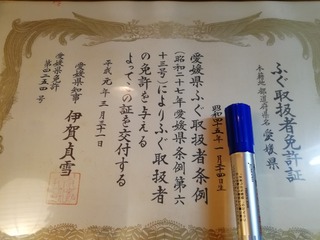 ふぐ取扱者免許証
本籍地都道府県名 愛媛県
昭和四十五年一月二十四日生
愛媛県ふぐ取扱者条例
(昭和二十七年愛媛県条例第六
十三号)によりふぐ取扱者
の免許を与える
よってこの証を交付する
平成元年三月二十一日
愛媛県知事 伊賀貞雪
愛媛県免許
第四二五四号